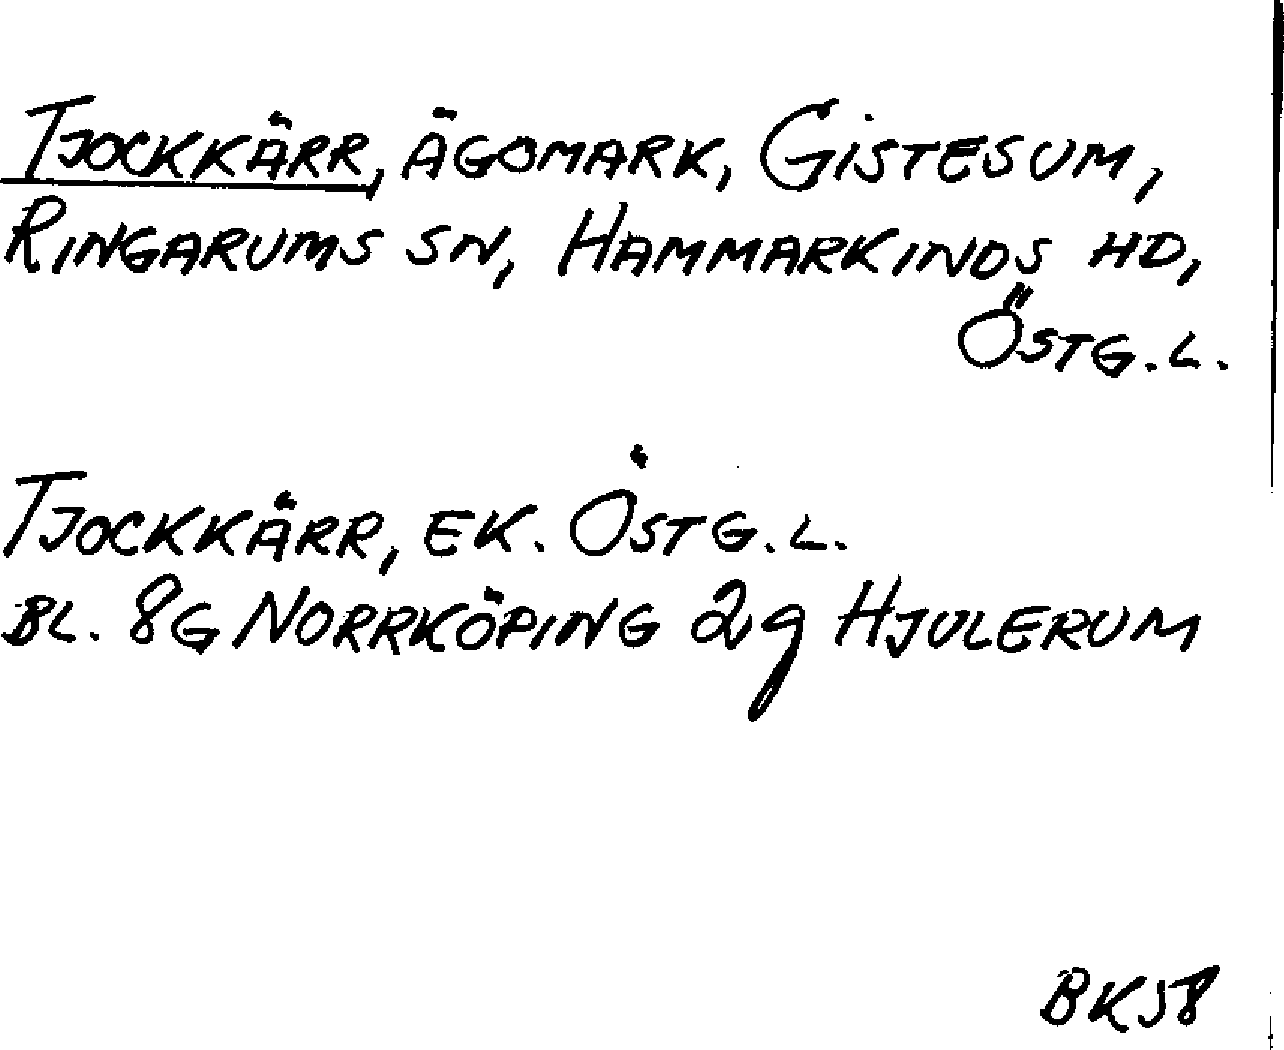 Tjockkärr, ägomark, Gistesum,
Ringarums sn, Hammarkinds hd,
Östg.l.
Tjockkärr, ek. Östg.l.
bl. 8G Norrköping 2g Hjulerum
BK58